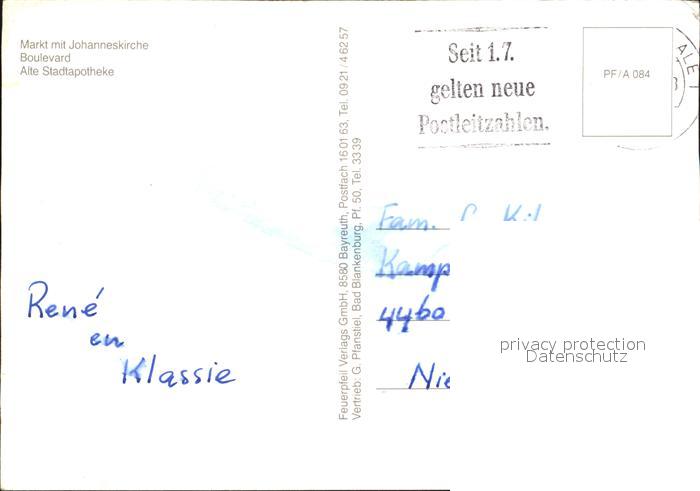 Markt mit Johanneskirche
Boulevard
Alte Stadtapotheke
Seit 1.7.
gelten neue
Postleitzahlen.
PF/A 084
ALE
Feuerpfeil Verlags GmbH, 8580 Bayreuth, Postfach 16 01 63, Tel. 09 21 / 4 62 57
Vertrieb: G. Pfanstiel, Bad Blankenburg, Pf. 50, Tel. 33 39
Fam.
Kamp
4460
Nie
René
en
Klassie
privacy protection
Datenschutz